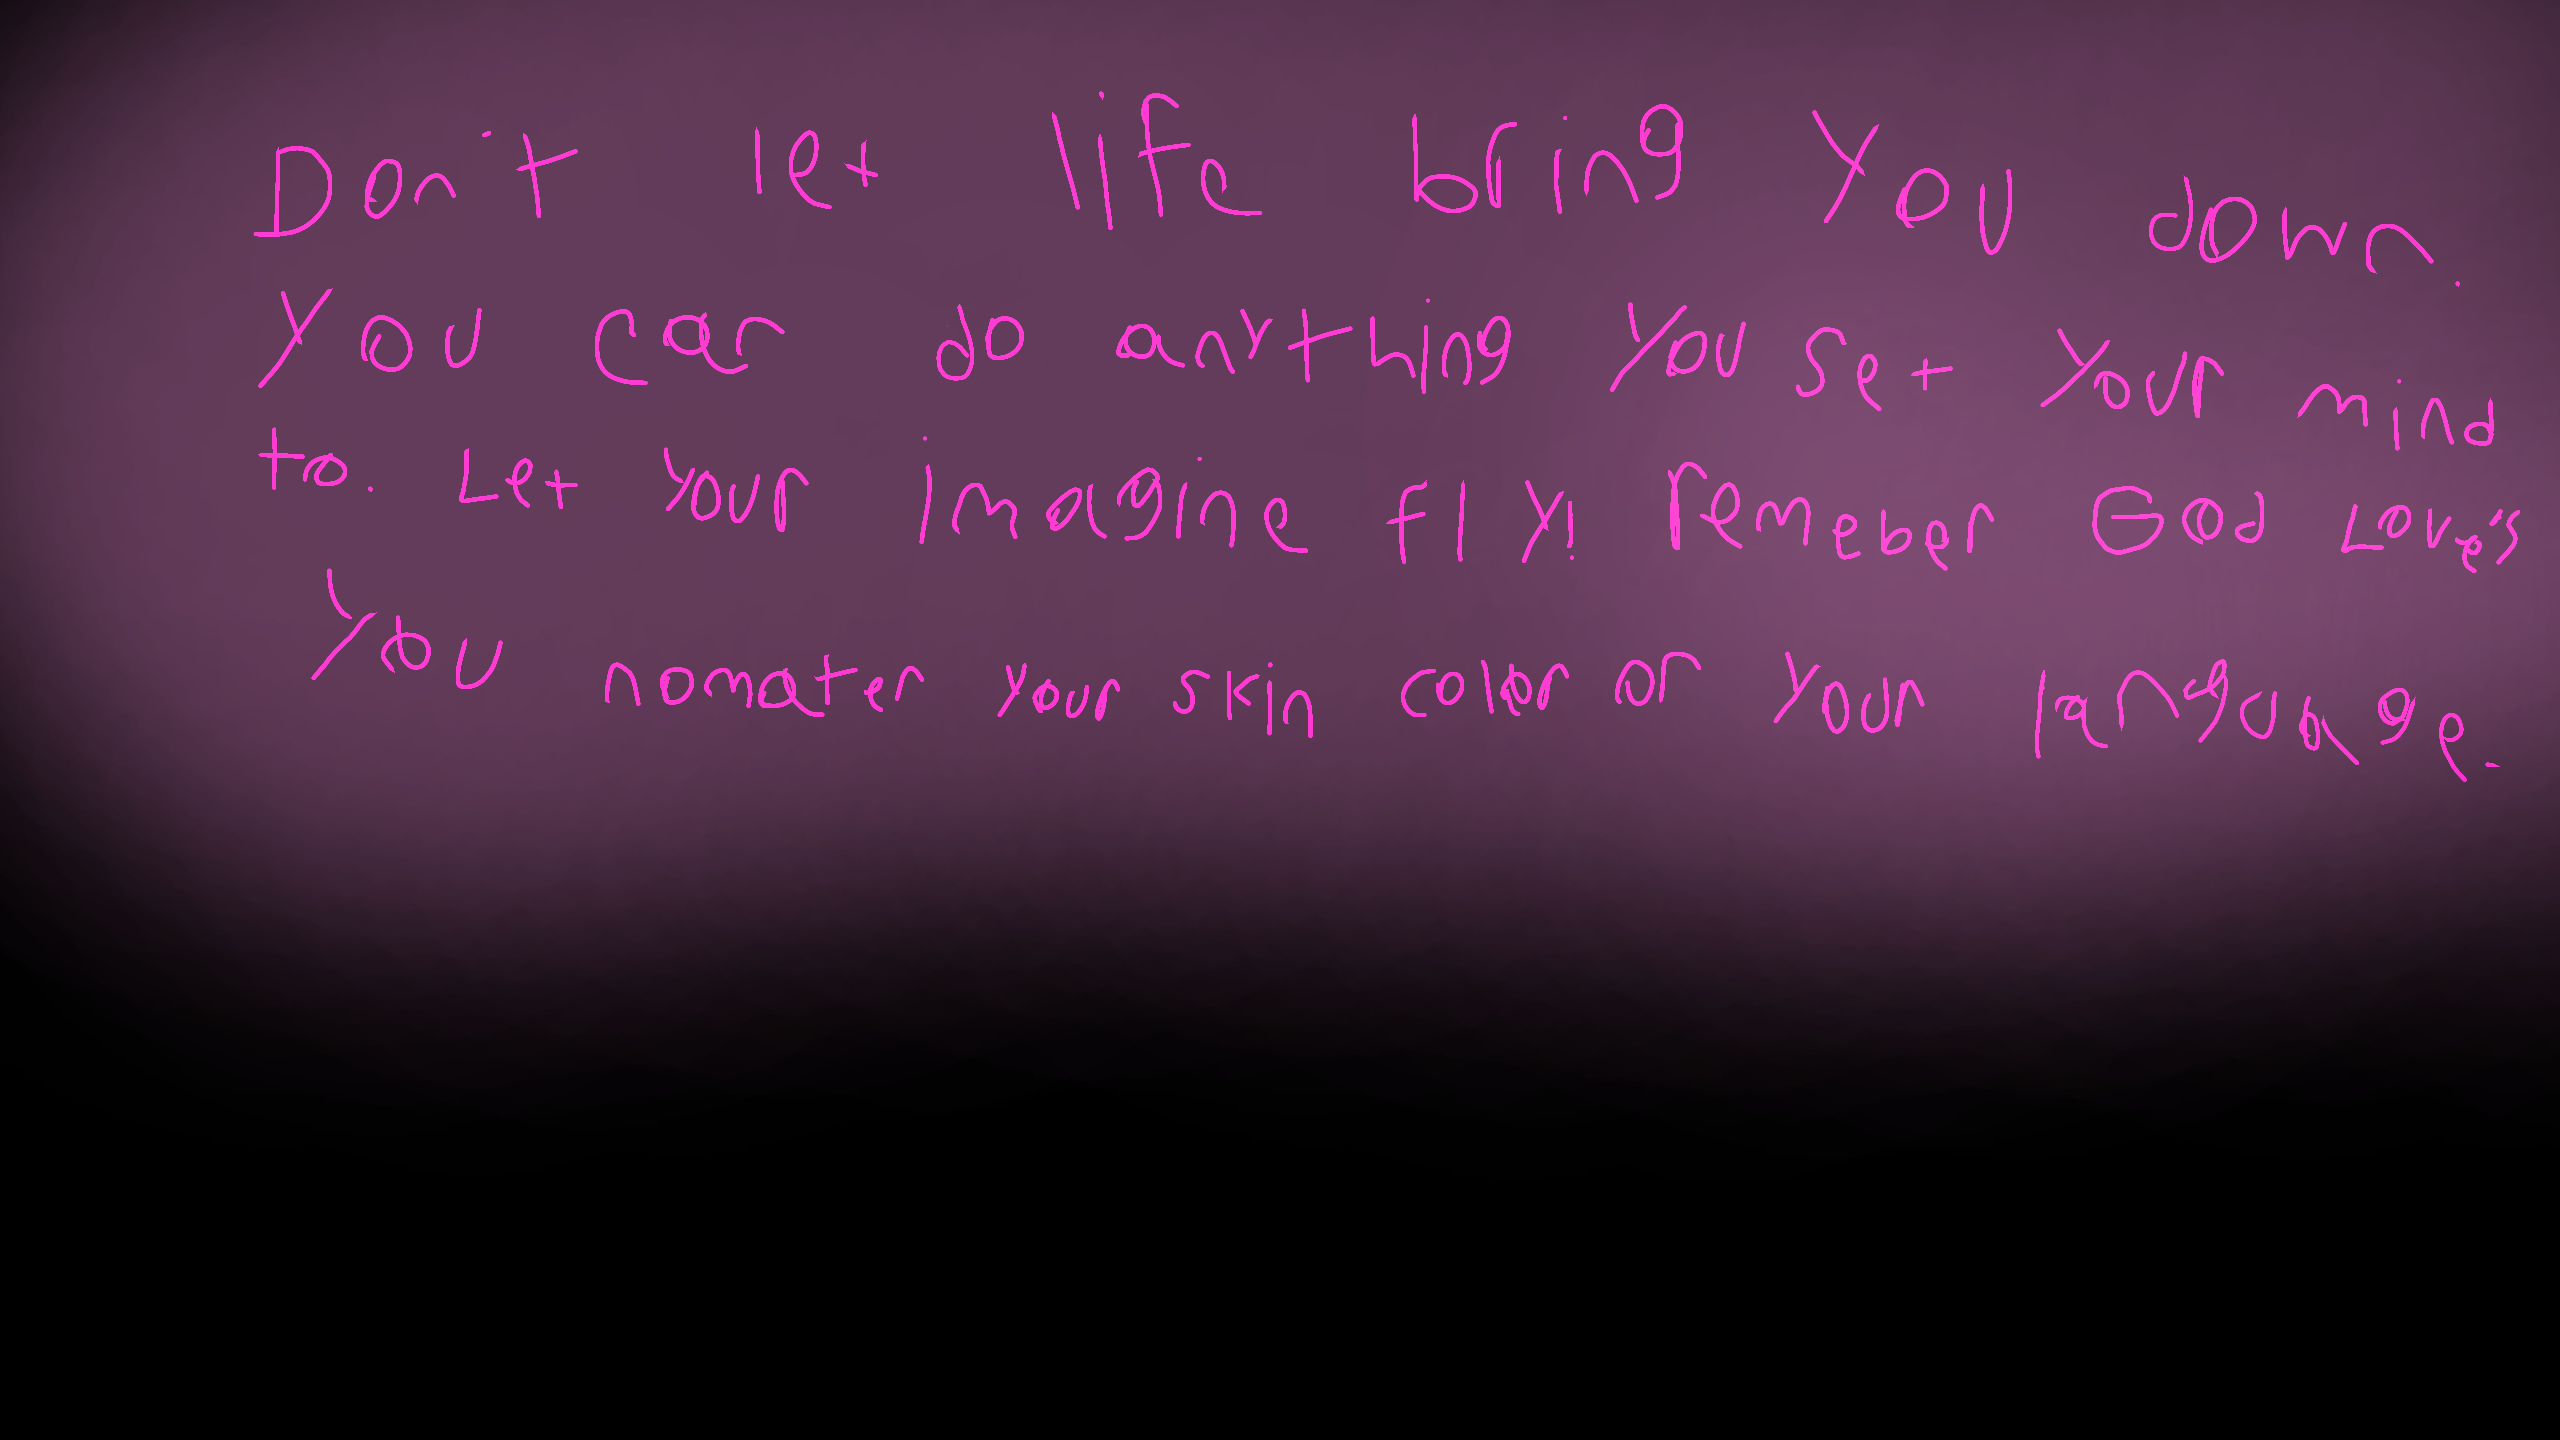 Don't let life bring you down.
You can do anything you set your mind
to. Let your imagine fly! remeber God Love's
You nomater your skin color or your language.